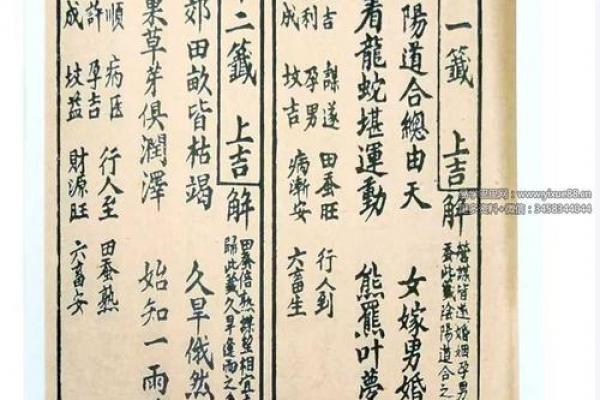 一籤 上吉 解
營謀皆遂婚姻孕男
蚕此籤陰陽道合之
陽道合總由天 女嫁男婚
看龍蛇堪運動 熊羆叶夢
吉 謀遂 田蚕旺 行人到
利 孕男
成 坟吉 病漸安 六畜生
二籤 上吉 解
田蚕倍熟謀望相宜
歸此籤久旱逢雨之
郊田畝皆枯竭 久旱俄然
果草芽俱潤澤 始知一雨
順 病医 行人至 田蚕熟
許 孕吉
成 坟益 財源旺 六畜安
www.yixue88.cn
微信：3458344044